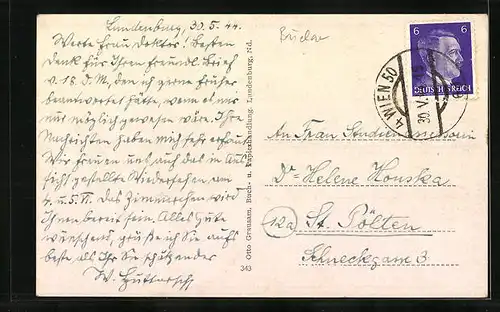 Lundenburg, 30.5.44.
Werte Frau Doktor! Besten
Dank für Ihren freundl. Brief
v. 18. d. M., den ich gerne früher
beantwortet hätte, wenn es mir
nur möglich gewesen wäre. Ihre
Nachrichten haben mich sehr erfreut.
Wir freuen uns auf das in Aus-
sicht gestellte Wiedersehen am
4. u. 5. VI. Das Zimmerchen wird
Ihnen bereit sein. Alles Gute
wünschend, grüße ich Sie aufs
beste als Ihr Sie schätzender
W.
Otto Greusam, Buch- u. Papierhandlung, Lundenburg, Nd.
343
6 6
DEUTSCHES REICH
4 WIEN 50
30.V.
An Frau
Dr Helene Houska
12a St. Pölten
Schneckgasse 3